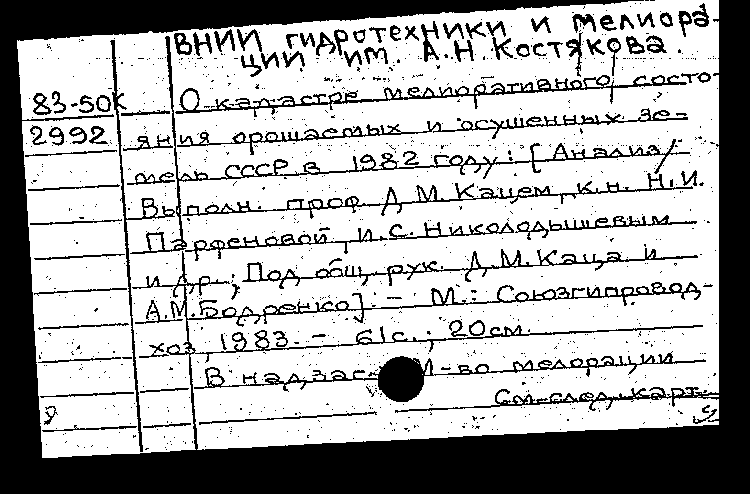 ВНИИ гидротехники и мелиора-
ции им. А.Н. Костякова.
83-50К О кадастре мелиоративного состо-
2992 яния орошаемых и осушенных зе-
мель СССР в 1982 году: [Анализ/
Выполн. проф. Д.М. Кацем, к.н. Н.И.
Парфеновой, И.С. Николодышевым
и др.; Под общ. рук. Д.М. Каца и
А.М. Бодренко]. - М.: Союзгипровод-
хоз, 1983. - 61с.; 20см.
В надзаг. М-во мелорации
См. след. карт.